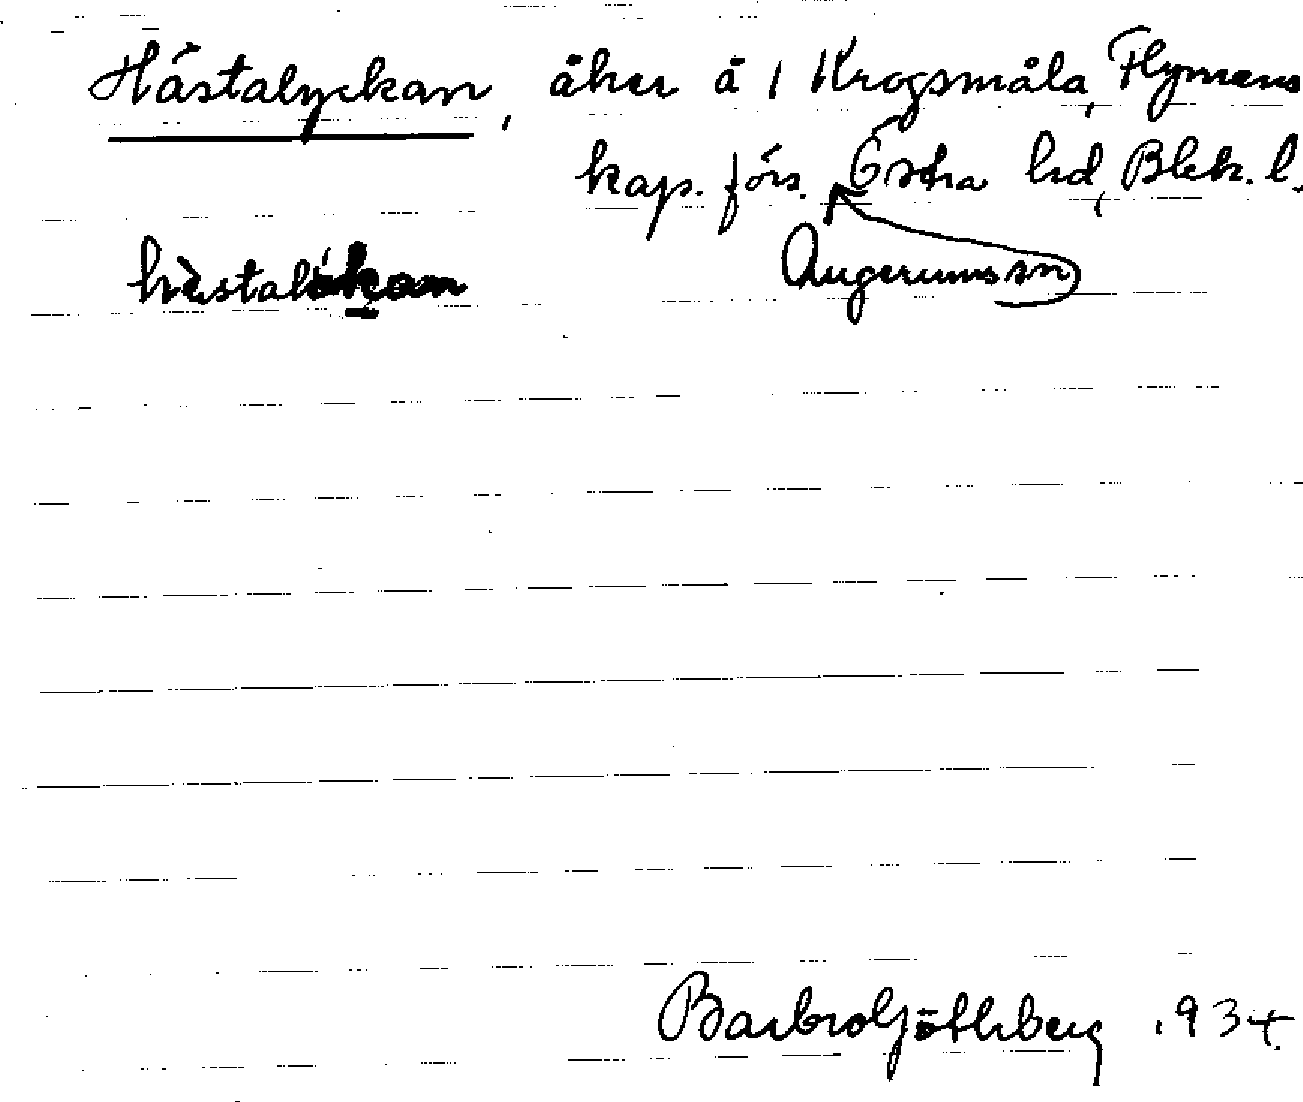 Hästalyckan, åker å 1 Krogsmåla, Flymens
kap. förs. Östra hd, Blek. l.
Augerums sn
Barbro Göthberg 1934